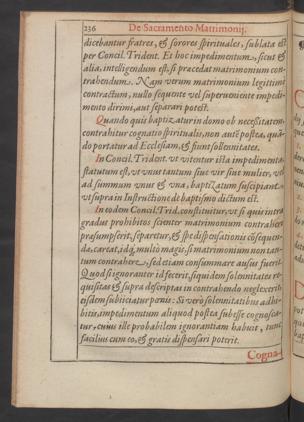 236 De Sacramento Matrimonij.
dicebantur fratres, & sorores spirituales, sublata est
per Concil. Trident. Et hoc impedimentum, sicut &
alia, intelligendum est, si præcedat matrimonium con-
trahendum. Nam verum matrimonium legitimè
contractum, nullo sequente vel superueniente impedi-
mento dirimi, aut separari potest.
Quando quis baptizatur in domo ob necessitatem,
contrahitur cognatio spiritualis, non autẽ postea, quã-
do portatur ad Ecclesiam, & fiunt sollennitates.
In Concil. Trident. vt vitentur ista impedimenta,
statutum est, vt vnus tantum siue vir siue mulier, vel
ad summum vnus & vna, baptizatum suscipiant.
vt supra in Instructione de baptismo dictum est.
In eodem Concil. Trid. constituitur, vt si quis intra
gradus prohibitos scienter matrimonium contrahere
præsumpserit, separetur, & spe dispensationis cõsequen-
dæ careat, idq; multò magis, si matrimonium non tan-
tum contrahere, sed etiam consummare ausus fuerit.
Quod si ignoranter id fecerit, siquidem solennitates re-
quisitas & supra descriptas in contrahendo neglexerit,
eisdem subijciatur pœnis: Si verò solennitatibus adhi-
bitis, impedimentum aliquod postea subesse cognosca-
tur, cuius ille probabilem ignorantiam habuit, tunc
facilius cum eo, & gratis dispensari poterit.
Cogna-